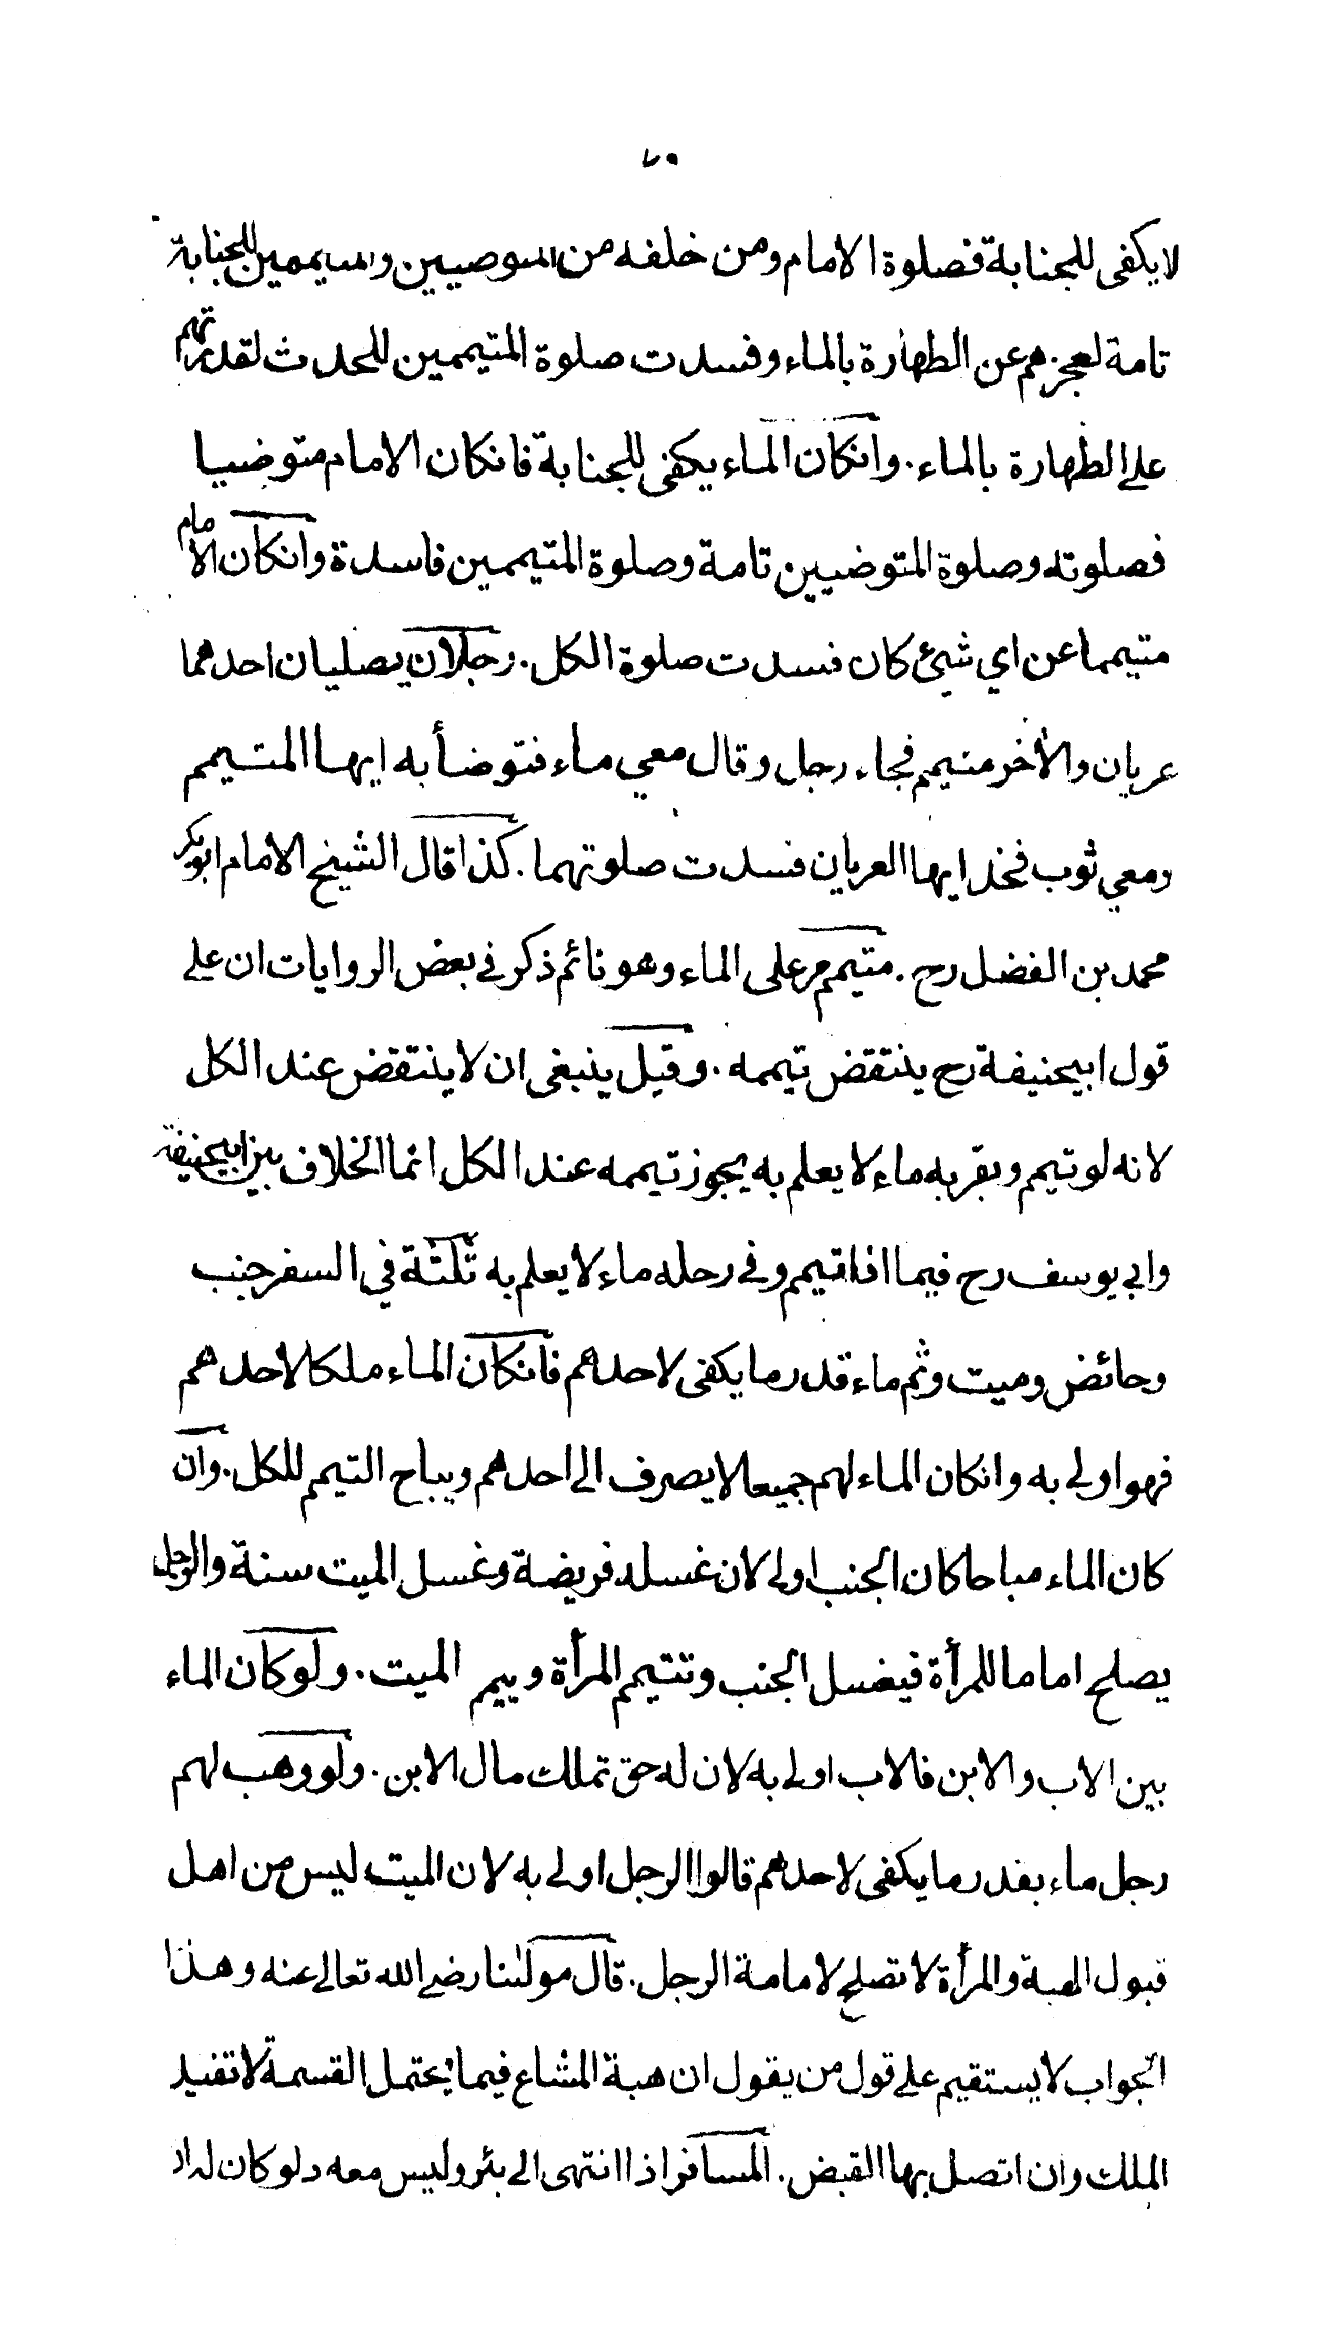 ٧٥
لا يكفى للجنابة فصلوة الامام ومن خلفه من المتوضيين والمتيممين للجنابة
تامة لعجزهم عن الطهارة بالماء وفسدت صلوة المتيممين للحدث لقدرتهم
على الطهارة بالماء. وانكان الماء يكفى للجنابة فانكان الامام متوضيا
فصلوته وصلوة المتوضيين تامة وصلوة المتيممين فاسدة وانكان الامام
متيمما عن اي شيئ كان فسدت صلوة الكل. رجلان يصليان احدهما
عريان والأخر متيمم فجاء رجل وقال معي ماء فتوضأ به ايها المتيمم
ومعي ثوب فخذ ايها العريان فسدت صلوتهما. كذا قال الشيخ الامام ابو بكر
محمد بن الفضل رح. متيمم مر على الماء وهو نائم ذكر في بعض الروايات ان على
قول ابيحنيفة رح ينتقض تيممه. وقيل ينبغى ان لا ينتقض عند الكل
لانه لو تيمم وبقربه ماء لا يعلم به يجوز تيممه عند الكل انما الخلاف بين ابيحنيفة
وابي يوسف رح فيما اذا تيمم وفي رحله ماء لا يعلم به ثلثة في السفر جنب
وحائض وميت وثم ماء قدر ما يكفى لاحدهم فانكان الماء ملكا لاحدهم
فهو اولى به وانكان الماء لهم جميعا لا يصرف الى احدهم ويباح التيمم للكل. وان
كان الماء مباحا كان الجنب اولى لان غسله فريضة وغسل الميت سنة والرجل
يصلح اماما للمرأة فيغسل الجنب وتتيمم المرأة وييمم الميت. ولو كان الماء
بين الاب والابن فالاب اولى به لان له حق تملك مال الابن. ولو وهب لهم
رجل ماء بقدر ما يكفى لاحدهم قالوا الرجل اولى به لان الميت ليس من اهل
قبول الهبة والمرأة لا تصلح لامامة الرجل. قال مولٰنا رضي الله تعالى عنه وهذا
الجواب لا يستقيم على قول من يقول ان هبة المشاع فيما يحتمل القسمة لا تفيد
الملك وان اتصل بها القبض. المسافر اذا انتهى الى بئر وليس معه دلو كان له ان